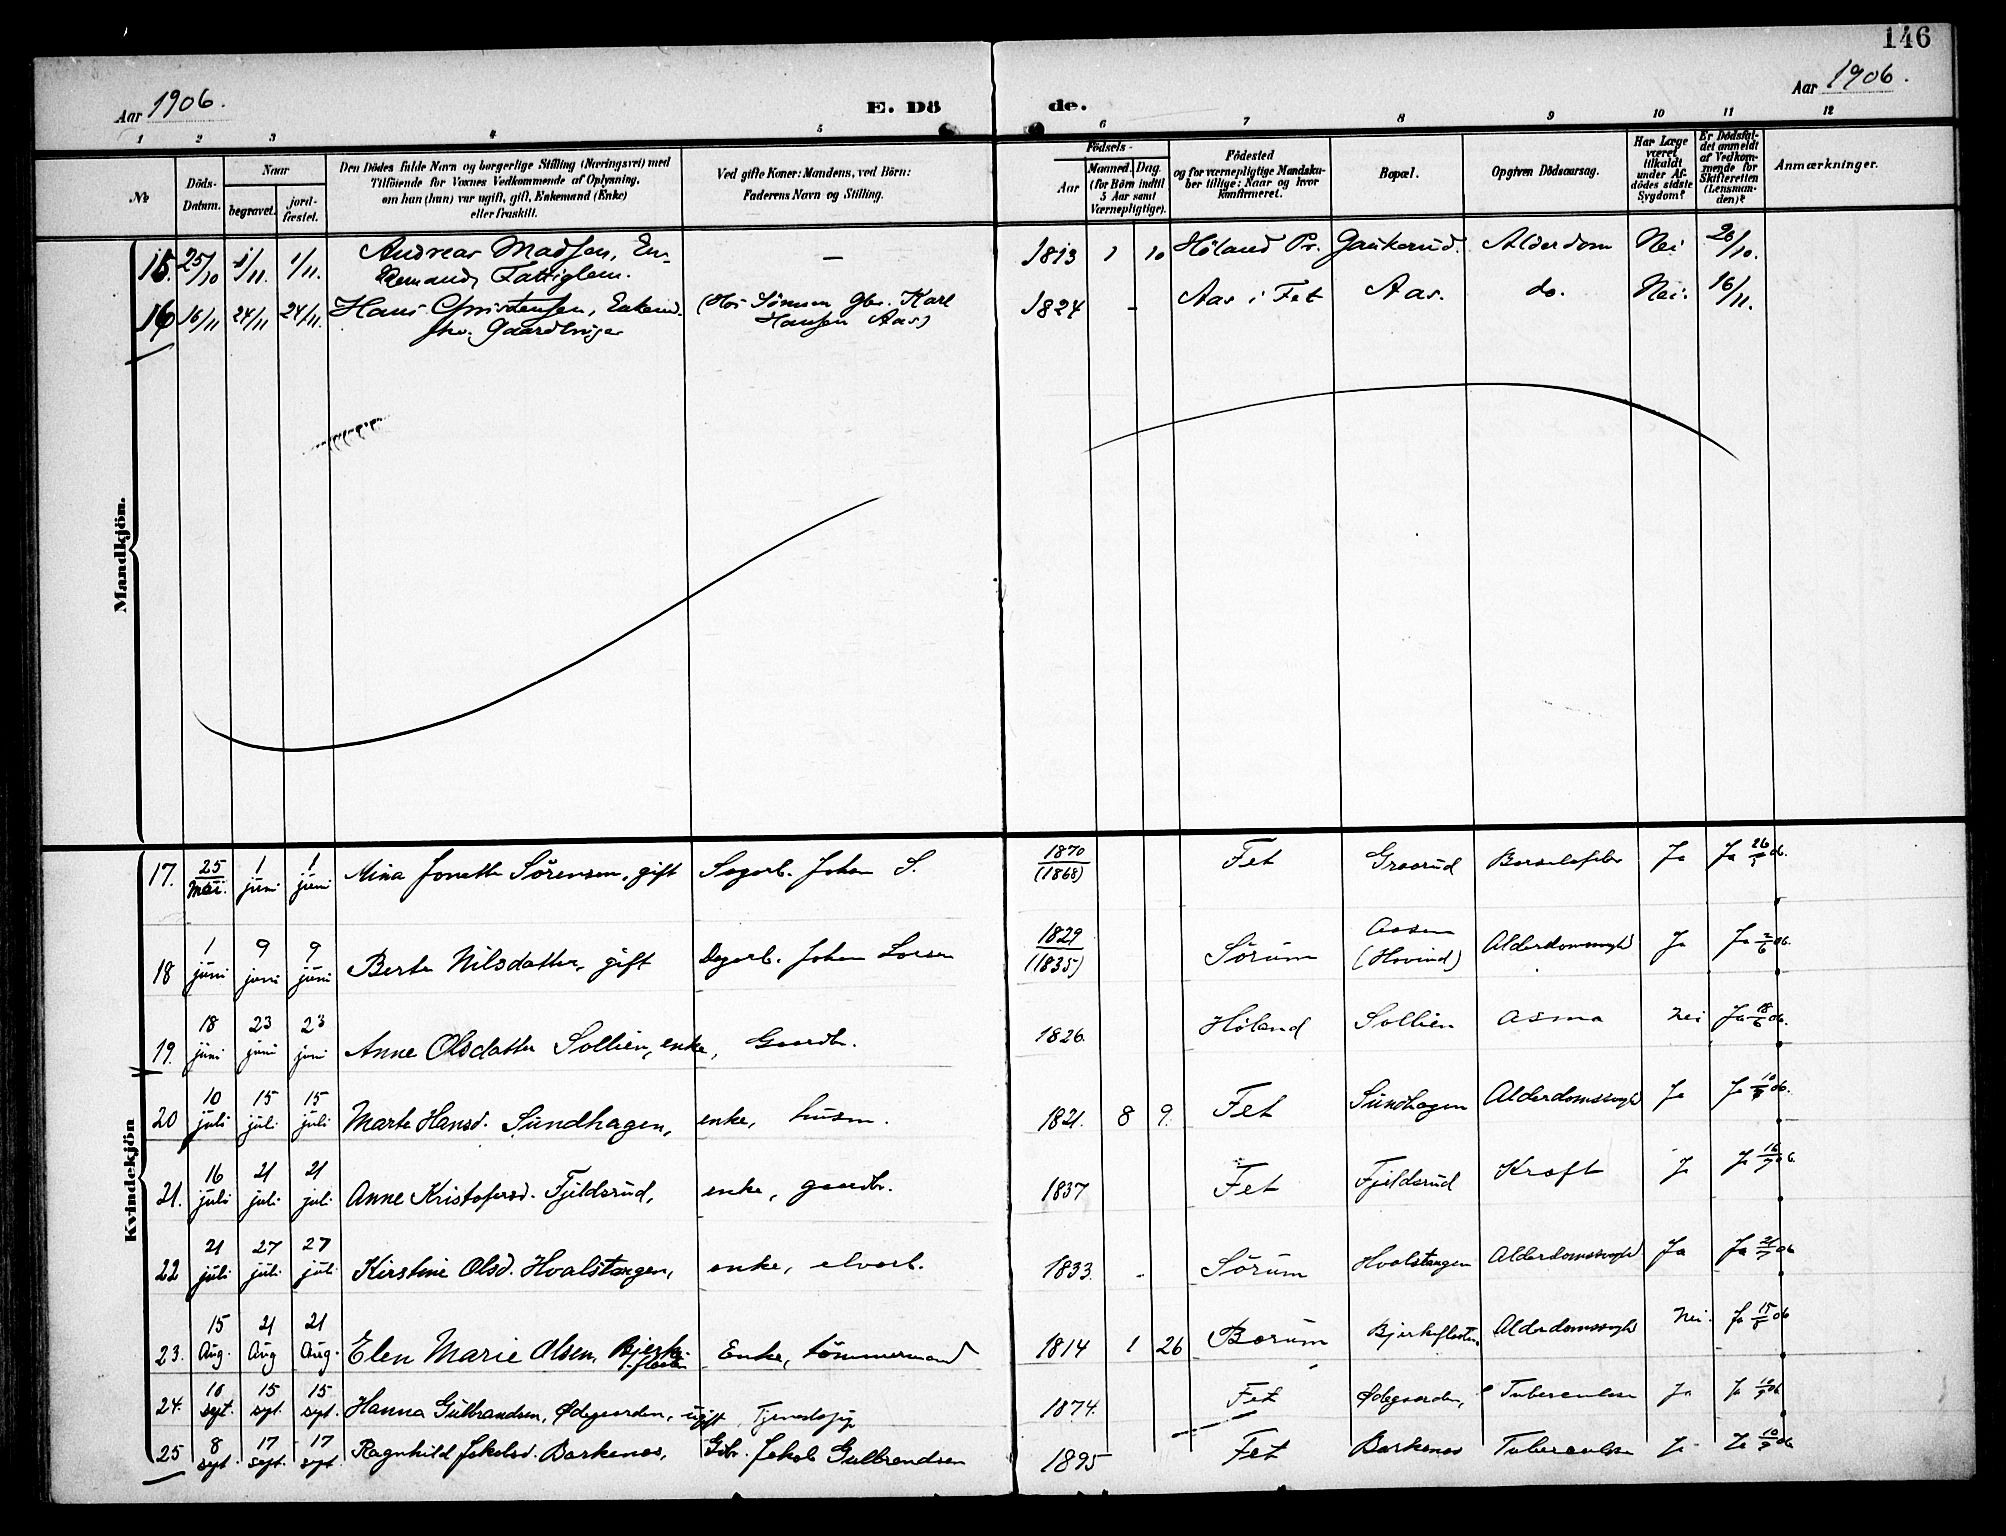 146
Aar 1906.
E. Dö de.
Aar 1906.
1 2 3 4 5 6 7 8 9 10 11 12
№
Döds-Datum.
Naar
begravet.
jord-fæstet.
Den Dödes fulde Navn og borgerlige Stilling (Næringsvei) med
Tilföiende for Voxnes Vedkommende af Oplysning,
om han (hun) var ugift, gift, Enkemand (Enke)
eller fraskilt.
Ved gifte Koner: Mandens, ved Börn:
Faderens Navn og Stilling.
Födsels-
Aar
Maaned. Dag.
(for Börn indtil
5 Aar samt
Værnepligtige).
Födested
og for værnepligtige Mandska-
ber tillige: Naar og hvor
konfirmeret.
Bopæl.
Opgiven Dödsaarsag.
Har Læge
været
tilkaldt
under Af-
dödes sidste
Sygdom?
Er Dödsfal-
det anmeldt
af Vedkom-
mende for
Skifteretten
(Lensman-
den)?
Anmærkninger.
Mandkjön.
15. 25/10 1/11. 1/11. Andreas Madsen, En-
kemand, Fattiglem. — 1813 1 10 Höland Pr. Gaukerud. Alderdom Nei 26/10.
16 16/11 24/11 24/11. Hans Christensen, Enkemd.
fhv. Gaardbruger (Hos Sönnen Gbr. Karl
Hansen Aas) 1824 - Aas i Fet Aas. do. Nei. 16/11.
Kvindekjön
17. 25 Mai. 1 juni 1 juni Mina Jonette Sörensen, gift Sagarb. Johan S. 1870 (1868) Fet Graarud Barselfeber Ja Ja 26/5 06.
18 1 juni 9 juni 9 juni Berte Nilsdatter, gift Dagarb. Johan Larsen 1829 (1835) Sörum (Hovind) Alderdomssvaghd Ja Ja 2/6 06.
19. 18 juni 23 juni 23 juni Anne Olsdatter Sollien, enke, Gaardbr. 1826. Höland Sollien Asma Nei Ja 18/6 06.
20 10 juli 15 juli 15 juli Marte Hansd. Sundhagen, enke, husm. 1821. 8 9. Fet Sundhagen Alderdomssvaghd Ja Ja 10/7 06.
21. 16 juli 21 juli 21 juli Anne Kristofersd. Fjeldsrud, enke, gaardbr. 1837 Fet Fjeldsrud Kræft Ja Ja 16/7 06.
22 21 juli 27 juli 27 juli Kirstine Olsd. Hvalstangen, enke, elvarb. 1833. - Sörum Hvalstangen Alderdomssvaghd Ja Ja 21/7 06
23. 15 Aug. 21 Aug 21 Aug. Elen Marie Olsen, Bjerke-
flaten Enke, tömmermand 1814 1 26 Bærum Bjerkeflaten Alderdomssvaghd Nei. Ja 15/8 06
24. 10 sept. 15 sept. 15 sept. Hanna Gulbrandsen, Ødegaarden, ugift, Tjenestepige 1874. Fet Ødegaarden, Tuberculose Ja Ja 10/9 06
25 8 sept. 17 sept. 17 sept. Ragnhild Jakobsd. Barkenæs, Gbr. Jakob Gulbrandsen 1895 Fet Barkenæs Tuberculose Ja Ja 10/9 06